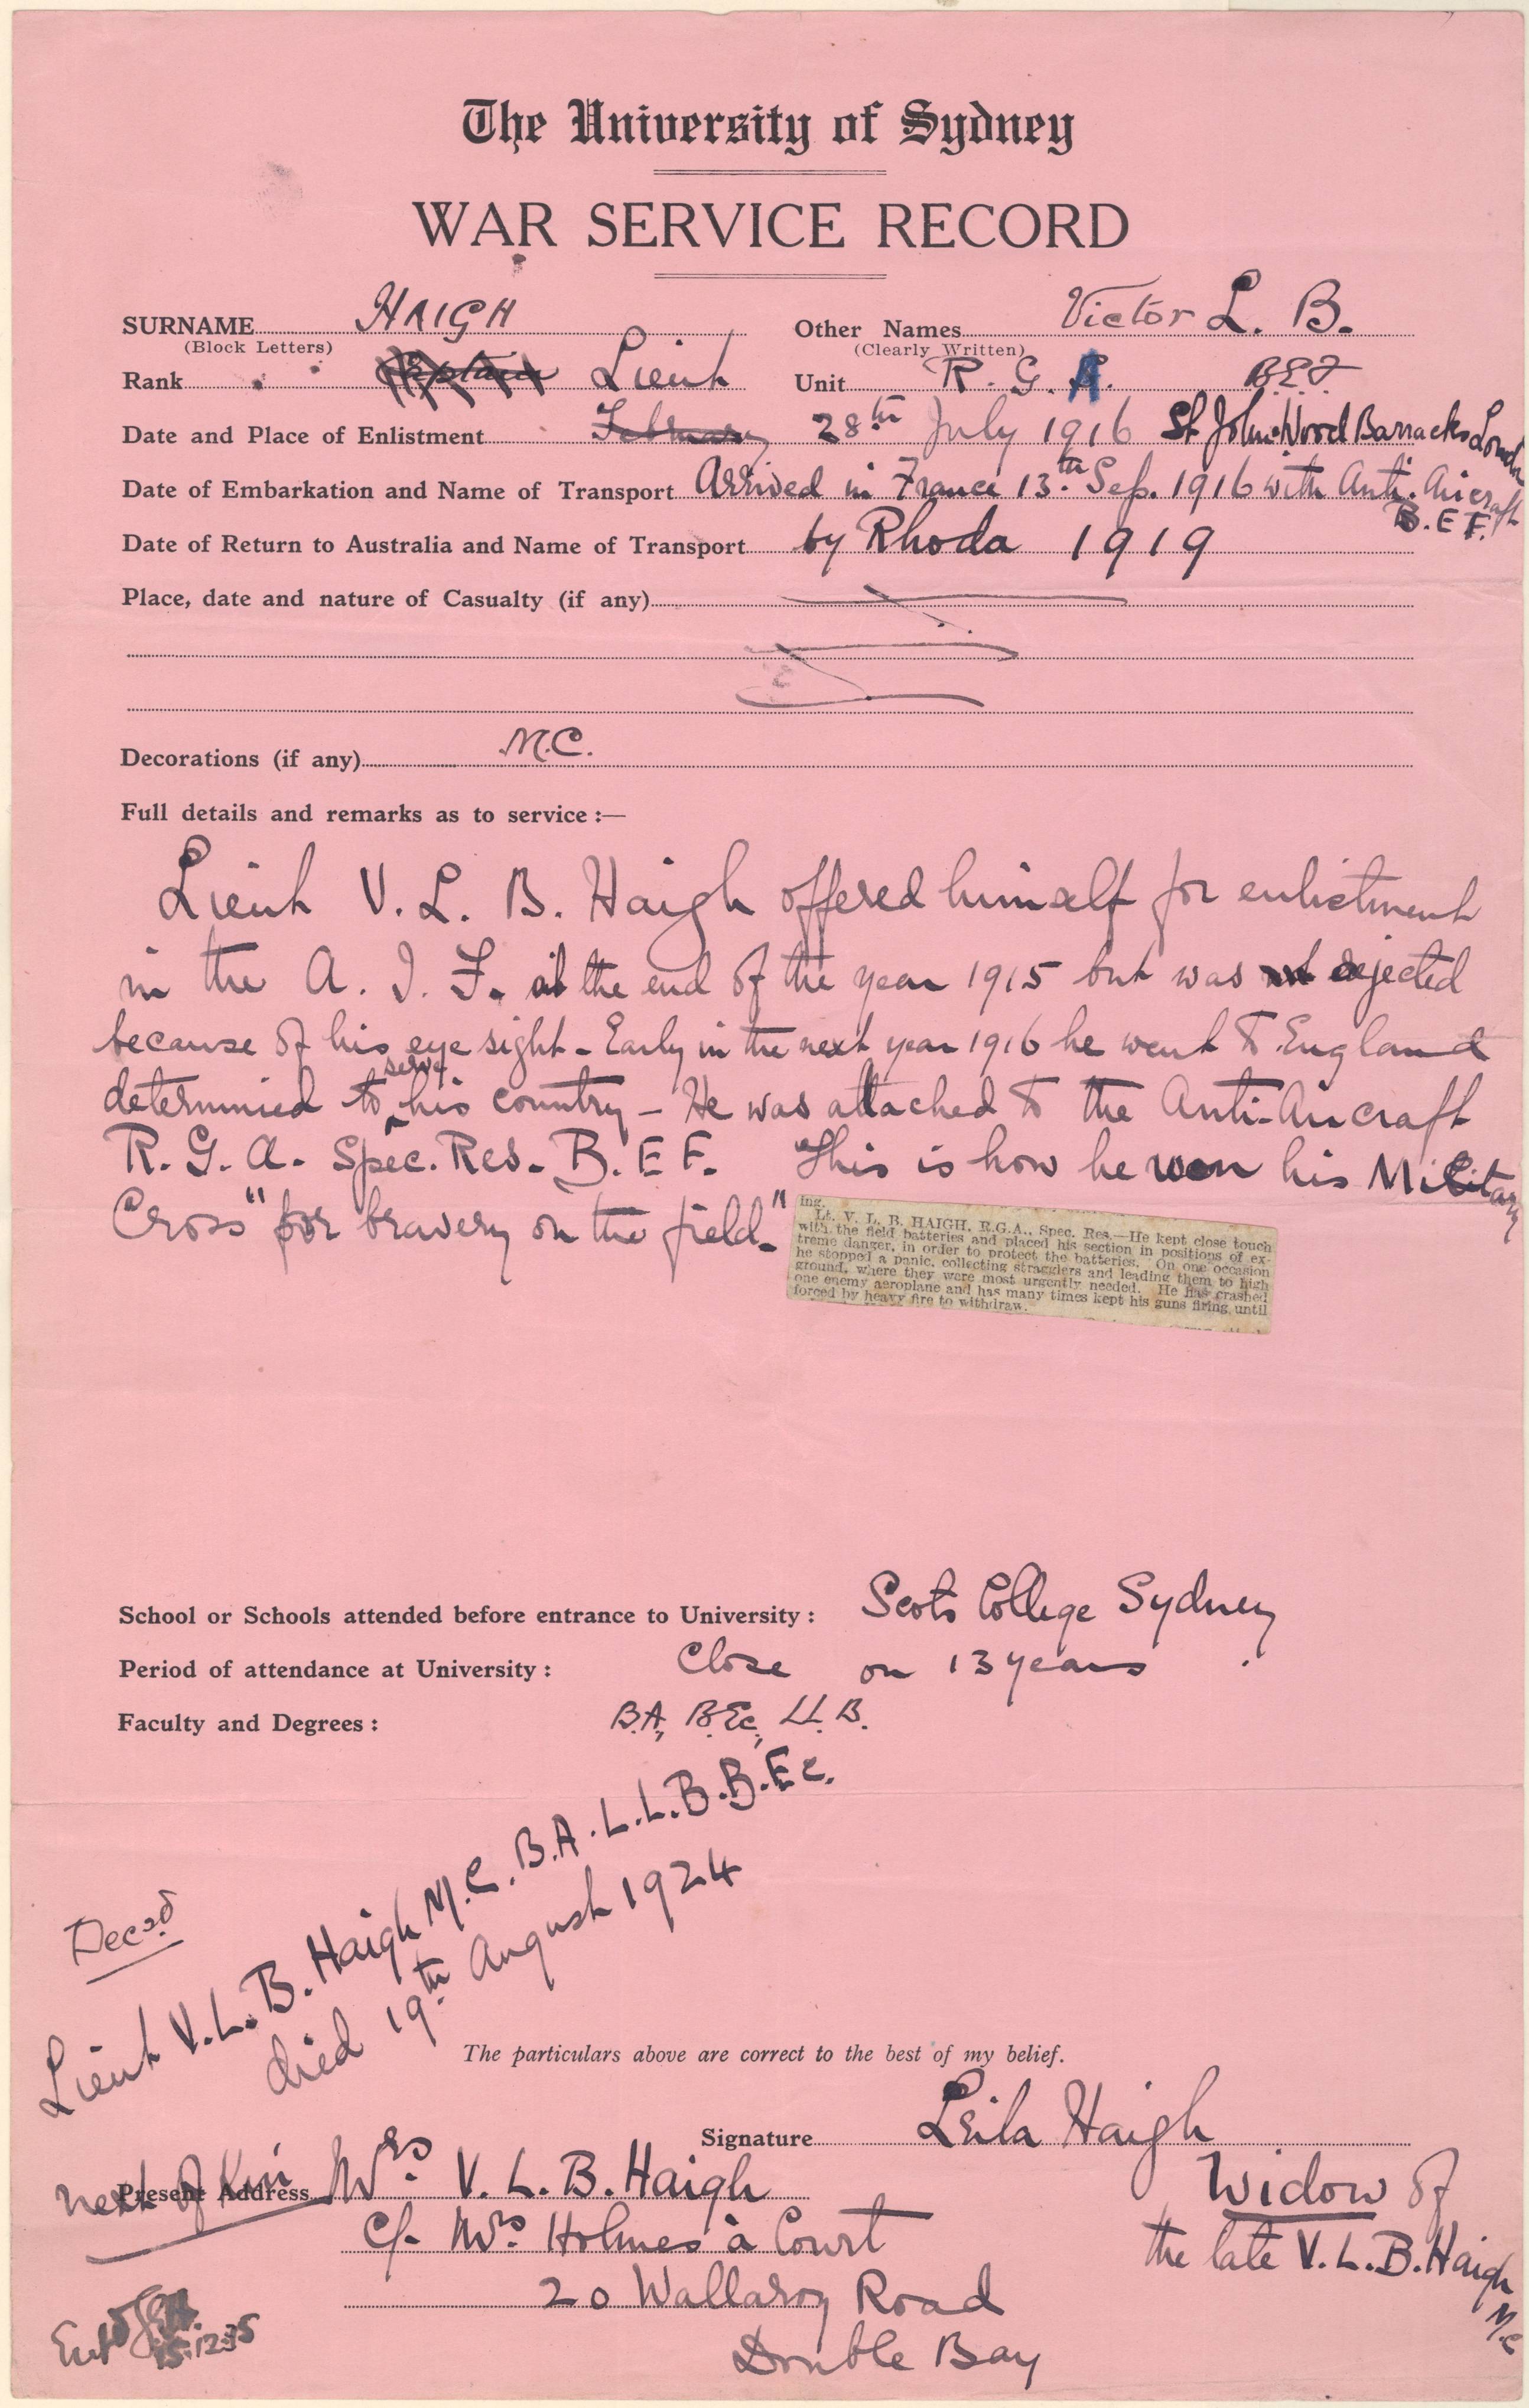 The University of Sydney
WAR SERVICE RECORD
SURNAME HAIGH Other Names Victor L. B.
(Block Letters) (Clearly Written)
Rank Captain Lieut Unit R. G. A. B.E.F
Date and Place of Enlistment February 28th July 1916 St John Wood Barracks London
Date of Embarkation and Name of Transport Arrived in France 13th Sep. 1916 with Anti-Aircraft
B.E.F.
Date of Return to Australia and Name of Transport by Rhoda 1919
Place, date and nature of Casualty (if any)
Decorations (if any) M.C.
Full details and remarks as to service :—
Lieut V. L. B. Haigh offered himself for enlistment
in the A. I. F. at the end of the year 1915 but was rejected
because of his eye sight - Early in the next year 1916 he went to England
determined to serve his country - He was attached to the Anti-Aircraft
R. G. A. Spec. Res. B. E F. This is how he won his Military
Cross "for bravery on the field."
ing.
Lt. V. L. B. HAIGH, R.G.A., Spec. Res.—He kept close touch
with the field batteries and placed his section in positions of ex-
treme danger, in order to protect the batteries. On one occasion
he stopped a panic, collecting stragglers and leading them to high
ground, where they were most urgently needed. He has crashed
one enemy aeroplane and has many times kept his guns firing until
forced by heavy fire to withdraw.
School or Schools attended before entrance to University : Scots College Sydney
Period of attendance at University : Close on 13 years
Faculty and Degrees : B.A., B.Ec., LL.B.
Decsd
Lieut V.L.B. Haigh M.C. B.A. L.L.B. B.Ec.
died 19th August 1924
The particulars above are correct to the best of my belief.
Signature Leila Haigh
Widow of
the late V. L. B. Haigh
M.C
next of Kin
Present Address Mrs V. L. B. Haigh
c/- Mrs Holmes à Court
20 Wallaroy Road
Double Bay
15.12.35